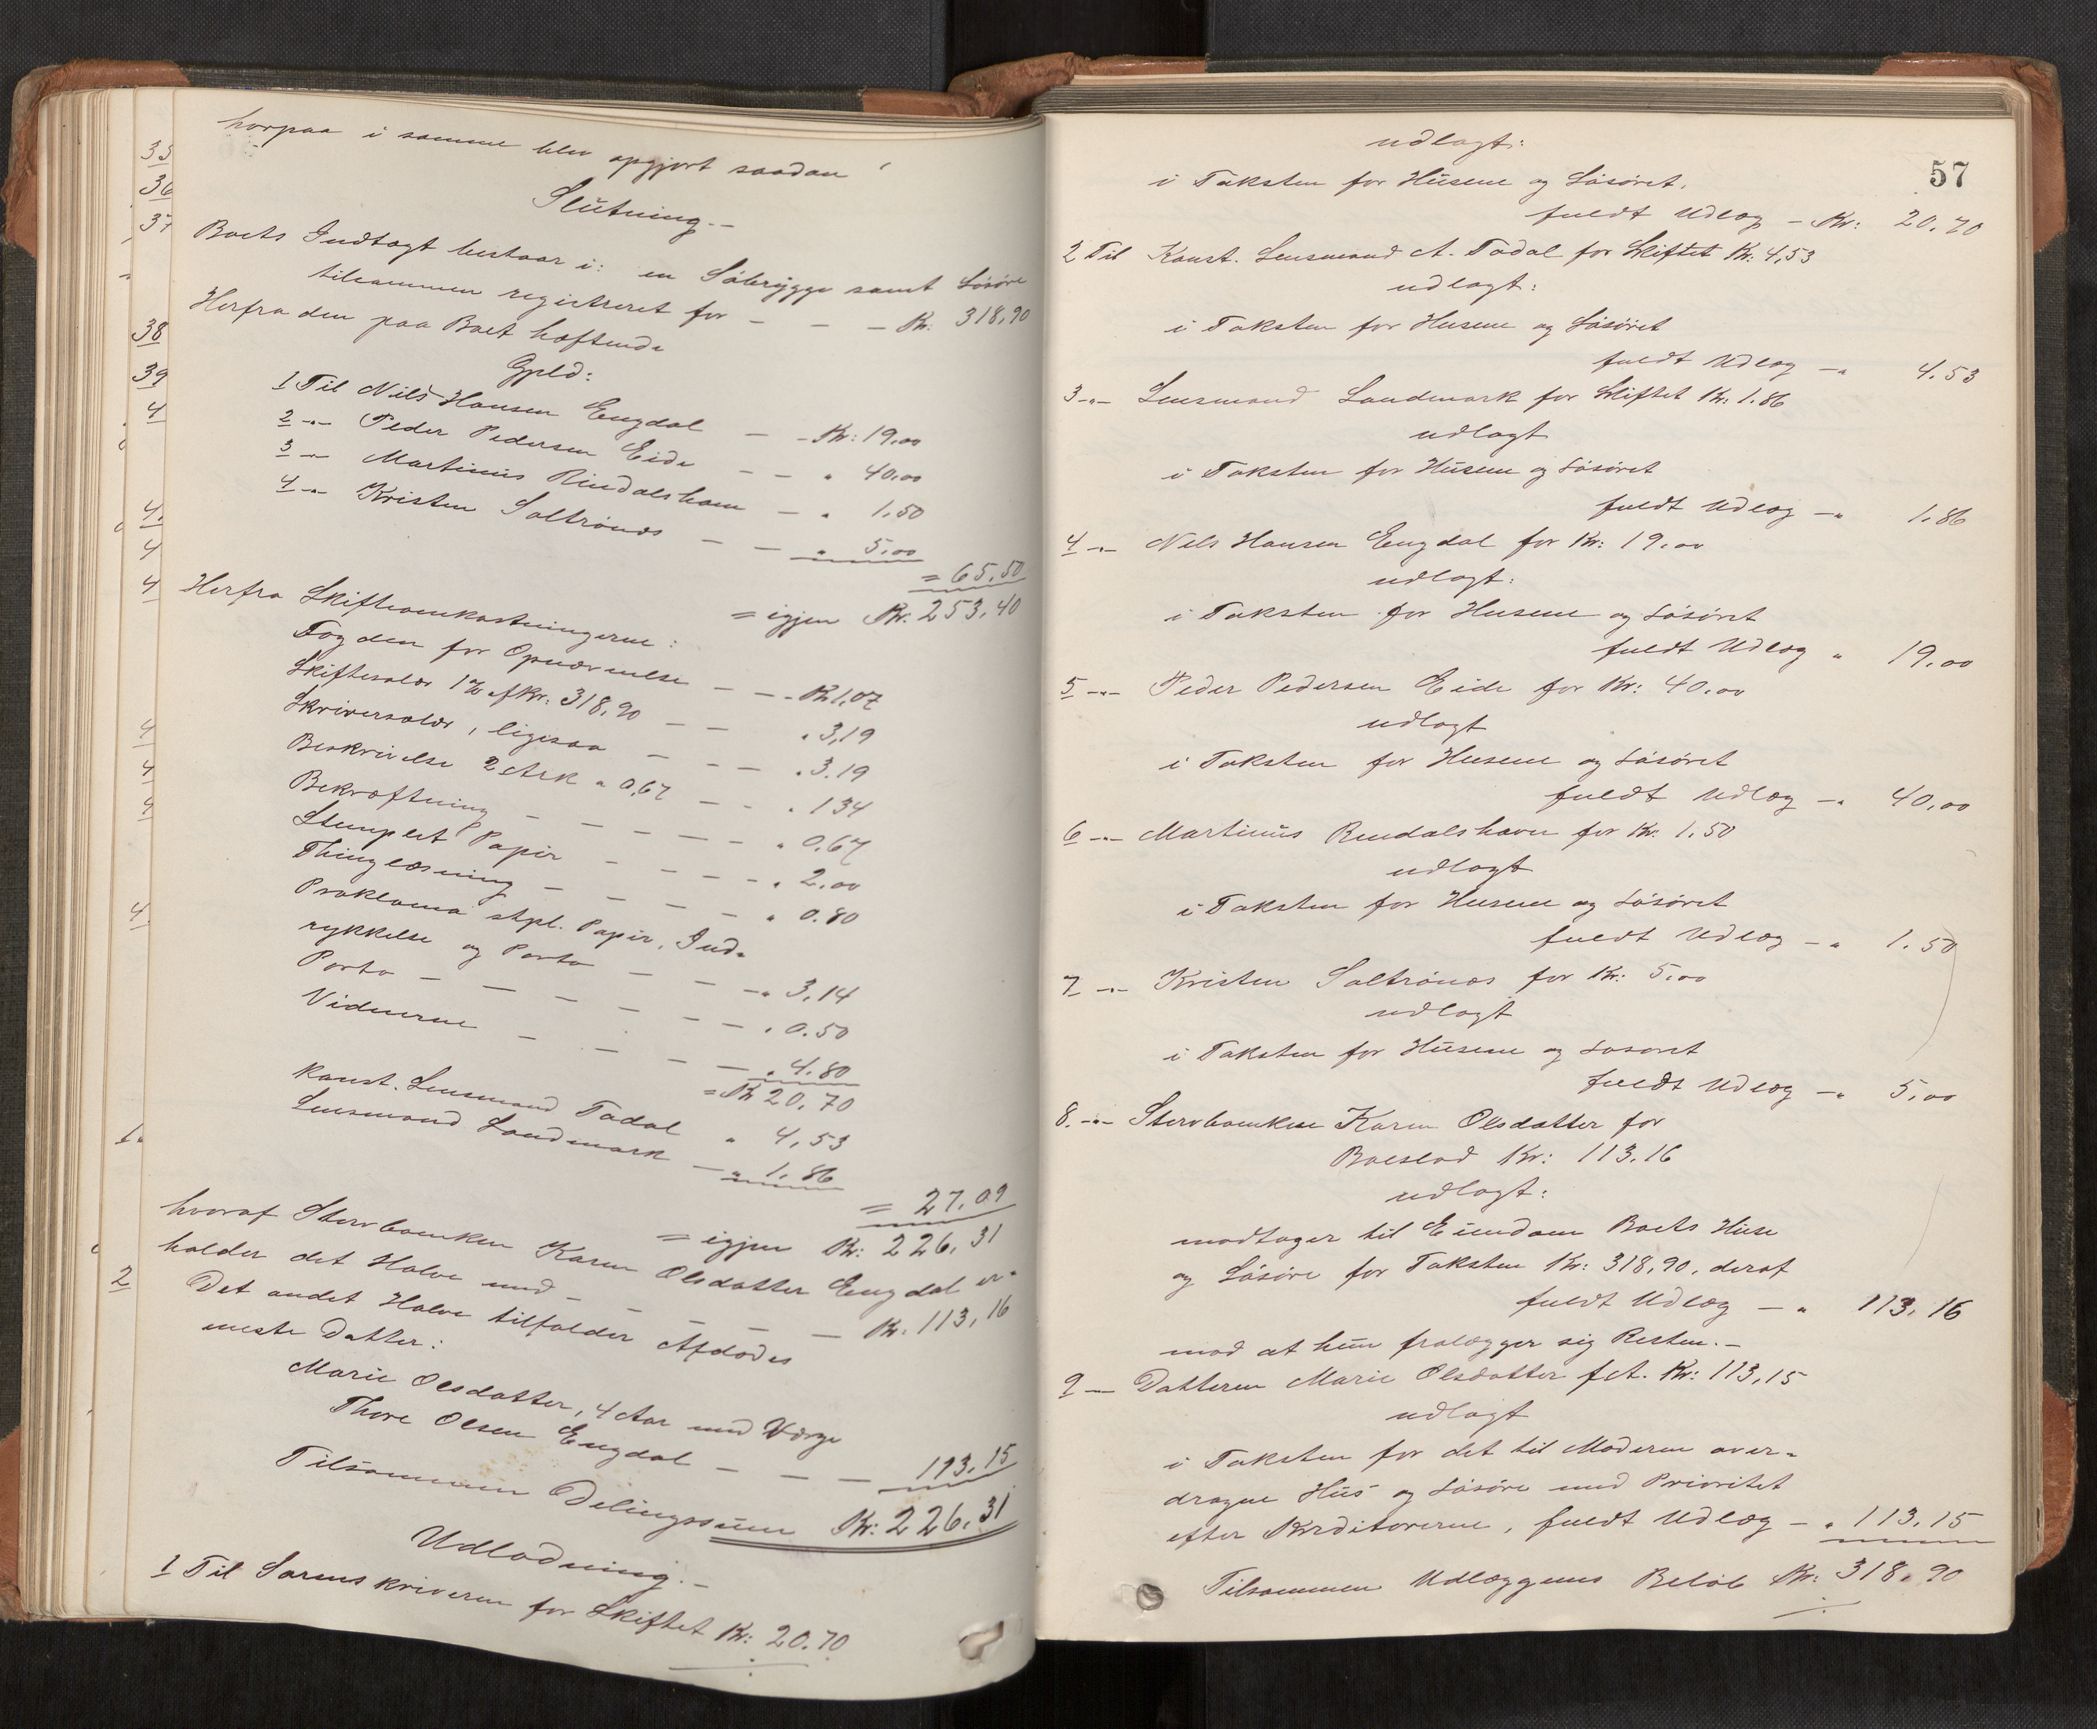 horpaa i samme blev opgjort saadan
Slutning.-
Boets Indtægt bestaar i: en Söbrygge samt Lösöre
tilsammen registreret for - - - Kr: 318,90
Herfra den paa Boet heftende
Gjeld:
1 Til Nils Hansen Engdal - - Kr: 19.00
2 -"- Peder Pedersen Eide - - " 40.00
3 -"- Martinus Rindalshavn - " 1.50
4 -"- Kristen Saltrönæs - - " 5.00
= 65.50
= igjen Kr. 253,40
Herfra Skifteomkostningerne:
Fogden for Opnævnelse - - - Kr 1,07
Skiftesalær 1% af Kr: 318,90 - - " 3,19
Skriversalær, ligesaa - - - " 3.19
Beskrivelse 2 Ark a 0,67 - - " 134
Bekræftning - - - - - " 0.67
Stemplet Papir - - - - " 2.00
Thinglæsning - - - - - " 0.80
Proklama stpl. Papir, Ind-
rykkelse og Porto - - - " 3,14
Porto - - - - - - " 0.50
Vidnerne - - - - " 4.80
= Kr 20.70
Konst. Lensmand Todal " 4,53
Lensmand Landmark - " 1.86
= 27,09
= igjen Kr: 226,31
hvoraf Stervboenken Karen Olsdatter Engdal er-
holder det Halve med - - - - Kr. 113,16
Det andet Halve tilfalder Afdödes
eneste Datter:
Marie Olsdatter, 4 Aar med Værge
Thore Olsen Engdal - - - 113,15
Tilsammen Delingssum Kr: 226,31
Udlodning.-
1 Til Sorenskriveren for Skiftet Kr: 20.70
35
36
37
38
39
4
4.
4
4
4
4
4
4
1.
2
57
udlagt:
i Taksten for Husene og Lösöret,
fuldt Udlæg - Kr: 20.70
2 Til Konst. Lensmand A. Todal for Skiftet Kr: 4,53
udlagt:
i Taksten for Husene og Lösöret
fuldt Udlæg -" 4.53
3 -"- Lensmand Landmark for Skiftet Kr: 1.86
udlagt
i Taksten for Husene og Lösöret
fuldt Udlæg -" 1.86
4 -"- Nils Hansen Engdal for Kr: 19.00
udlagt:
i Taksten for Husene og Lösöret
fuldt Udlæg " 19.00
5 -"- Peder Pedersen Eide for Kr: 40.00
udlagt
i Taksten for Husene og Lösöret
fuldt Udlæg -" 40,00
6 -"- Martinus Rindalshavn for Kr. 1.50
udlagt
i Taksten for Husene og Lösöret
fuldt Udlæg -" 1.50
7 -"- Kristen Saltrönæs for Kr: 5.00
udlagt
i Taksten for Husene og Lösöret
fuldt Udlæg -" 5,00
8. -"- Stervboenken Karen Olsdatter for
Boeslod Kr: 113.16
udlagt:
modtager til Eiendom Boets Huse
og Lösöre for Taksten Kr: 318,90, deraf
fuldt Udlæg - " 113,16
mod at hun fralægger sig Resten.-
9 - Datteren Marie Olsdatter f A. Kr: 113,15
udlagt
i Taksten for det til Moderen over-
dragne Hus og Lösöre med Prioritet
efter Kreditorerne, fuldt Udlæg - " 113,15
Tilsammen Udlæggenes Belöb Kr: 318.90